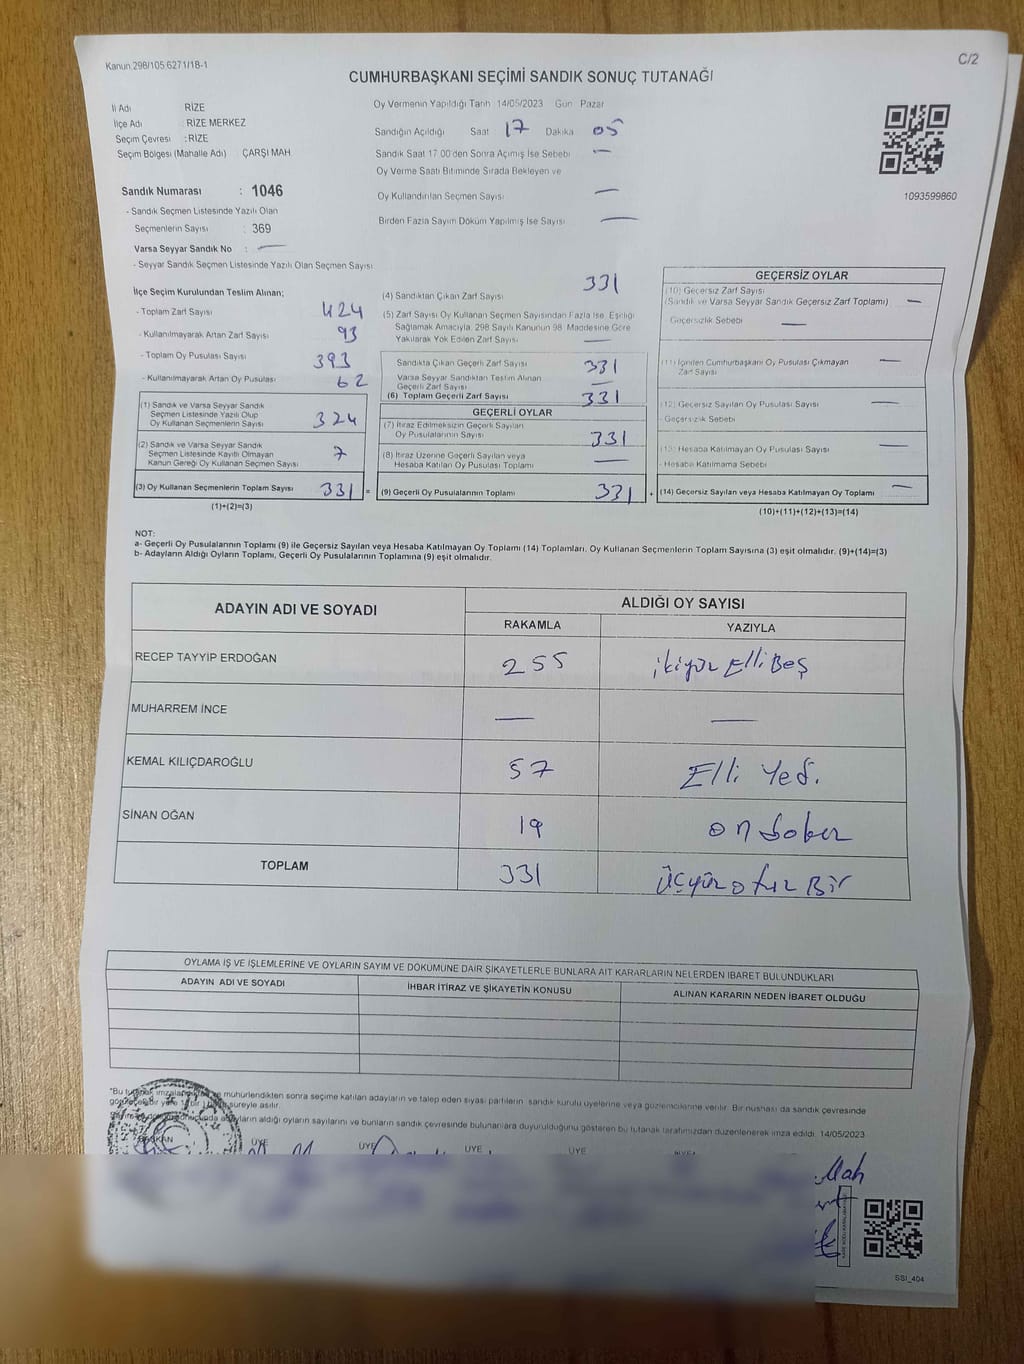 Kanun 298/105 6271/18-1
C/2
CUMHURBAŞKANI SEÇİMİ SANDIK SONUÇ TUTANAĞI
İl Adı RİZE
İlçe Adı : RİZE MERKEZ
Seçim Çevresi : RİZE
Seçim Bölgesi (Mahalle Adı) ÇARŞI MAH
Sandık Numarası : 1046
- Sandık Seçmen Listesinde Yazılı Olan
Seçmenlerin Sayısı : 369
Varsa Seyyar Sandık No : —
- Seyyar Sandık Seçmen Listesinde Yazılı Olan Seçmen Sayısı
Oy Vermenin Yapıldığı Tarih 14/05/2023 Gün Pazar
Sandığın Açıldığı Saat 17 Dakika 05
Sandık Saat 17 00'den Sonra Açımış İse Sebebi —
Oy Verme Saati Bitiminde Sırada Bekleyen ve
Oy Kullandırılan Seçmen Sayısı —
Birden Fazla Sayım Döküm Yapılmış İse Sayısı —
1093599860
İlçe Seçim Kurulundan Teslim Alınan;
- Toplam Zarf Sayısı 424
- Kullanılmayarak Artan Zarf Sayısı 93
- Toplam Oy Pusulası Sayısı 393
- Kullanılmayarak Artan Oy Pusulası 62
(1) Sandık ve Varsa Seyyar Sandık
Seçmen Listesinde Yazılı Olup
Oy Kullanan Seçmenlerin Sayısı 324
(2) Sandık ve Varsa Seyyar Sandık
Seçmen Listesinde Kayıtlı Olmayan
Kanun Gereği Oy Kullanan Seçmen Sayısı 7
(3) Oy Kullanan Seçmenlerin Toplam Sayısı 331 =
(1)+(2)=(3)
(4) Sandıktan Çıkan Zarf Sayısı 331
(5) Zarf Sayısı Oy Kullanan Seçmen Sayısından Fazla İse, Eşitliği
Sağlamak Amacıyla, 298 Sayılı Kanunun 98 Maddesine Göre
Yakılarak Yok Edilen Zarf Sayısı —
Sandıkta Çıkan Geçerli Zarf Sayısı 331
Varsa Seyyar Sandıktan Teslim Alınan
Geçerli Zarf Sayısı —
(6) Toplam Geçerli Zarf Sayısı 331
GEÇERLİ OYLAR
(7) İtiraz Edilmeksizin Geçerli Sayılan
Oy Pusulalarının Sayısı 331
(8) İtiraz Üzerine Geçerli Sayılan veya
Hesaba Katılan Oy Pusulası Toplamı —
(9) Geçerli Oy Pusulalarının Toplamı 331 +
GEÇERSİZ OYLAR
(10) Geçersiz Zarf Sayısı
(Sandık ve Varsa Seyyar Sandık Geçersiz Zarf Toplamı) —
- Geçersizlik Sebebi —
(11) İçinden Cumhurbaşkanı Oy Pusulası Çıkmayan
Zarf Sayısı —
(12) Geçersiz Sayılan Oy Pusulası Sayısı —
- Geçersizlik Sebebi
(13) Hesaba Katılmayan Oy Pusulası Sayısı —
- Hesaba Katılmama Sebebi
(14) Geçersiz Sayılan veya Hesaba Katılmayan Oy Toplamı —
(10)+(11)+(12)+(13)=(14)
NOT:
a- Geçerli Oy Pusulalarının Toplamı (9) ile Geçersiz Sayılan veya Hesaba Katılmayan Oy Toplamı (14) Toplamları, Oy Kullanan Seçmenlerin Toplam Sayısına (3) eşit olmalıdır. (9)+(14)=(3)
b- Adayların Aldığı Oyların Toplamı, Geçerli Oy Pusulalarının Toplamına (9) eşit olmalıdır.
ADAYIN ADI VE SOYADI ALDIĞI OY SAYISI
RAKAMLA YAZIYLA
RECEP TAYYİP ERDOĞAN 255 ikiyüz Elli Beş
MUHARREM İNCE — —
KEMAL KILIÇDAROĞLU 57 Elli Yedi
SİNAN OĞAN 19 on
TOPLAM 331 üçyüz otuz Bir
OYLAMA İŞ VE İŞLEMLERİNE VE OYLARIN SAYIM VE DÖKÜMÜNE DAİR ŞİKAYETLERLE BUNLARA AİT KARARLARIN NELERDEN İBARET BULUNDUKLARI
ADAYIN ADI VE SOYADI İHBAR İTİRAZ VE ŞİKAYETİN KONUSU ALINAN KARARIN NEDEN İBARET OLDUĞU
mühürlendikten sonra seçime katılan adayların ve talep eden siyasi partilerin sandık kurulu üyelerine veya gözlemcilerine verilir. Bir nüshası da sandık çevresinde
süreyle asılır.
adayların aldığı oyların sayılarını ve bunların sandık çevresinde bulunanlara duyurulduğunu gösteren bu tutanak tarafımızdan düzenlenerek imza edildi. 14/05/2023
BAŞKAN ÜYE ÜYE ÜYE ÜYE
Mah
SSI_404